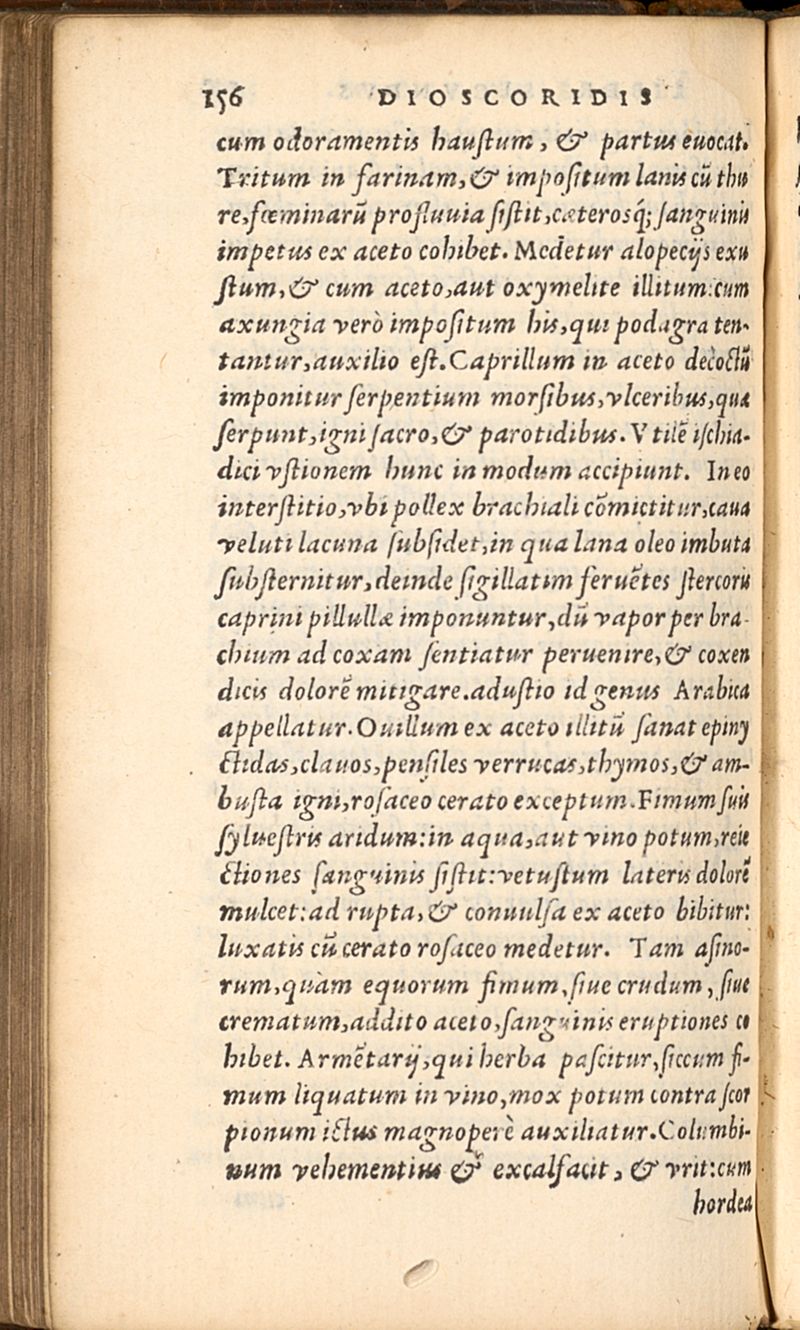 156 DIOSCORIDIS
cum odoramentis hauſtum, & partus euocat.
Tritum in farinam, & impoſitum lanis cũ thu
re, fœminarũ profluuia ſiſtit, cæterosq́; ſanguinis
impetus ex aceto cohibet. Medetur alopecijs exu
ſtum, & cum aceto, aut oxymelite illitum: cum
axungia verò impoſitum his, qui podagra ten-
tantur, auxilio eſt. Caprillum in aceto decoctũ
imponitur ſerpentium morſibus, vlceribus, quæ
ſerpunt, igni ſacro, & parotidibus. Vtilẽ iſchia-
dici vſtionem hunc in modum accipiunt. In eo
interſtitio, vbi pollex brachiali cõmittitur, caua
veluti lacuna ſubſidet, in qua lana oleo imbuta
ſubſternitur, deinde ſigillatim feruẽtes ſtercoris
caprini pillullæ imponuntur, dũ vapor per bra-
chium ad coxam ſentiatur peruenire, & coxen
dicis dolorẽ mitigare. aduſtio id genus Arabica
appellatur. Ouillum ex aceto illitũ ſanat epiny
ctidas, clauos, penſiles verrucas, thymos, & am-
buſta igni, roſaceo cerato exceptum. Fimum ſuis
ſylueſtris aridum: in aqua, aut vino potum, reie
ctiones ſanguinis ſiſtit: vetuſtum lateris dolorẽ
mulcet: ad rupta, & conuulſa ex aceto bibitur:
luxatis cũ cerato roſaceo medetur. Tam aſino-
rum, quàm equorum fimum, ſiue crudum, ſiue
crematum, addito aceto, ſanguinis eruptiones co
hibet. Armẽtarij, qui herba paſcitur, ſiccum fi-
mum liquatum in vino, mox potum contra ſcor
pionum ictus magnoperè auxiliatur. Columbi-
num vehementius & excalfacit, & vrit: cum
hordea